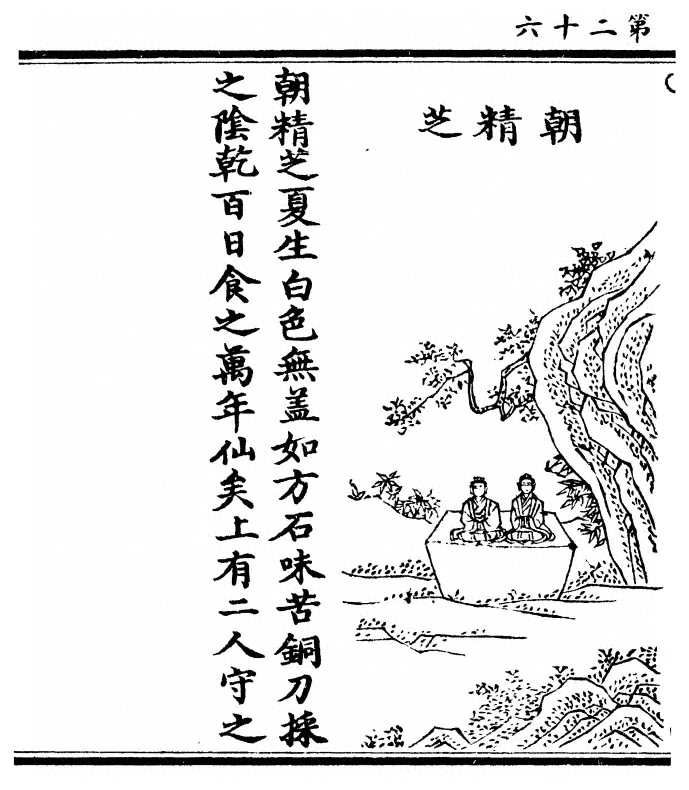 第二十六
朝精芝
朝精芝夏生白色無盖如方石味苦銅刀採
之陰乾百日食之萬年仙矣上有二人守之